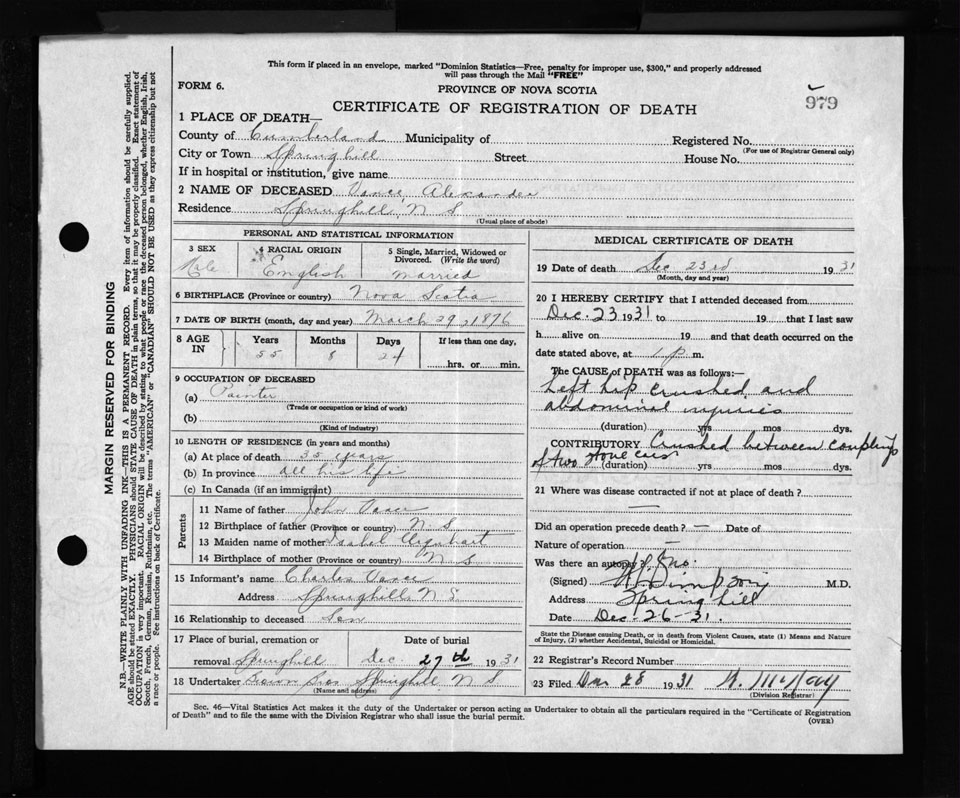 This form if placed in an envelope, marked "Dominion Statistics—Free, penalty for improper use, $300," and properly addressed
will pass through the Mail "FREE"
FORM 6.
PROVINCE OF NOVA SCOTIA
979
CERTIFICATE OF REGISTRATION OF DEATH
1 PLACE OF DEATH—
County of Cumberland Municipality of Registered No.
(For use of Registrar General only)
City or Town Springhill Street House No.
If in hospital or institution, give name
2 NAME OF DECEASED Vance, Alexander
Residence Springhill, N S
(Usual place of abode)
PERSONAL AND STATISTICAL INFORMATION
3 SEX 4 RACIAL ORIGIN 5 Single, Married, Widowed or Divorced. (Write the word)
Male English Married
6 BIRTHPLACE (Province or country) Nova Scotia
7 DATE OF BIRTH (month, day and year) March 29, 1876
8 AGE IN Years Months Days If less than one day,
55 8 24 hrs. or min.
9 OCCUPATION OF DECEASED
(a) Painter
(Trade or occupation or kind of work)
(b)
(Kind of industry)
10 LENGTH OF RESIDENCE (in years and months)
(a) At place of death 35 years
(b) In province all his life
(c) In Canada (if an immigrant)
Parents
11 Name of father John Vance
12 Birthplace of father (Province or country) N S
13 Maiden name of mother Isabel Urquhart
14 Birthplace of mother (Province or country) N S
15 Informant's name Charles Vance
Address Springhill N S
16 Relationship to deceased Son
17 Place of burial, cremation or removal Springhill Date of burial Dec 27th 1931
18 Undertaker Brown Bros Springhill N S
(Name and address)
MEDICAL CERTIFICATE OF DEATH
19 Date of death Dec 23rd 1931
(Month, day and year)
20 I HEREBY CERTIFY that I attended deceased from
Dec. 23 1931 to 19 that I last saw
h alive on 19 and that death occurred on the
date stated above, at 1 p m.
The CAUSE of DEATH was as follows:
Left hip crushed and
abdominal injuries
(duration) yrs mos dys.
CONTRIBUTORY Crushed between couplings
of two
(duration) yrs mos dys.
21 Where was disease contracted if not at place of death? —
Did an operation precede death? — Date of
Nature of operation —
Was there an autopsy? No.
(Signed) Simpson M.D.
Address Spring hill
Date Dec. 26-31.
State the Disease causing Death, or in death from Violent Causes, state (1) Means and Nature
of Injury, (2) whether Accidental, Suicidal or Homicidal.
22 Registrar's Record Number
23 Filed Dec 28 1931 McKay
(Division Registrar)
Sec. 46—Vital Statistics Act makes it the duty of the Undertaker or person acting as Undertaker to obtain all the particulars required in the "Certificate of Registration
of Death" and to file the same with the Division Registrar who shall issue the burial permit.
(OVER)
MARGIN RESERVED FOR BINDING
N.B.—WRITE PLAINLY WITH UNFADING INK—THIS IS A PERMANENT RECORD. Every item of information should be carefully supplied.
AGE should be stated EXACTLY. PHYSICIANS should STATE CAUSE OF DEATH in plain terms, so that it may be properly classified. Exact statement of
OCCUPATION is very important. RACIAL ORIGIN will be described by stating to what people or race the deceased person belonged, whether English, Irish,
Scotch, French, German, Russian, Ruthenian, etc. The terms "AMERICAN" or "CANADIAN" SHOULD NOT BE USED as they express citizenship but not
a race or people. See instructions on back of Certificate.